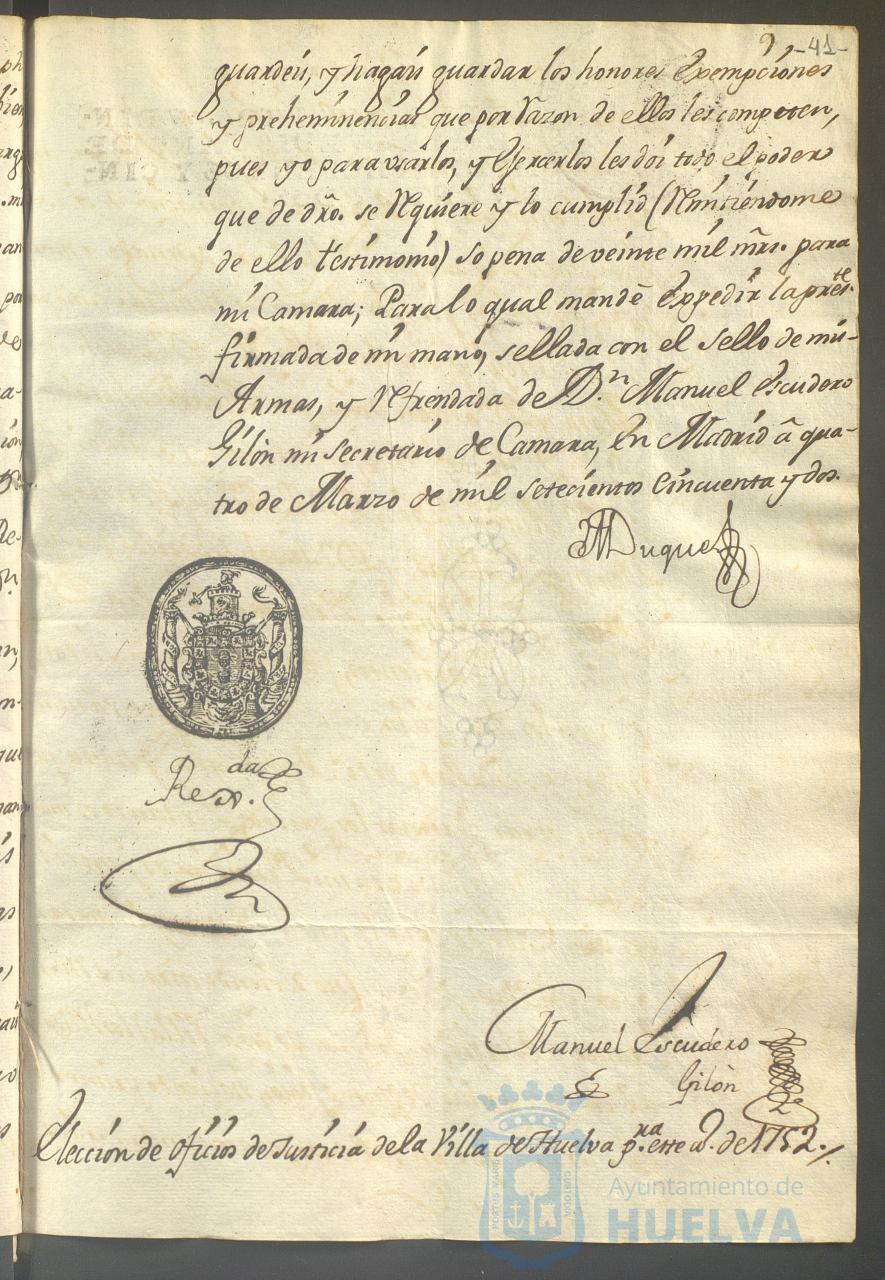 -41-
guarden, y hagan guardar los honores Exempciones
y preheminencias que por Razon de ellos les competen,
pues yo para usarlos, y Exercerlos les doi todo el poder
que de dro. se Requiere y lo cumplid (Remitiendome
de ello testimonio) so pena de veinte mil mrs. para
mi Camara; Para lo qual mandè Expedir la preste.
firmada de mi mano, sellada con el sello de mis
Armas, y Refrendada de Dn. Manuel Escudero
Gilòn mi secretario de Camara, En Madrid â qua-
tro de Marzo de mil setecientos Cinquenta y dos.
El Duque
Rexda.
Manuel Escudero
Gilòn
Elección de oficios de Justicia de la Villa de Huelva pra. este a. de 1752.
PORTUS MARIS
CUSTODIA
Ayuntamiento de
HUELVA